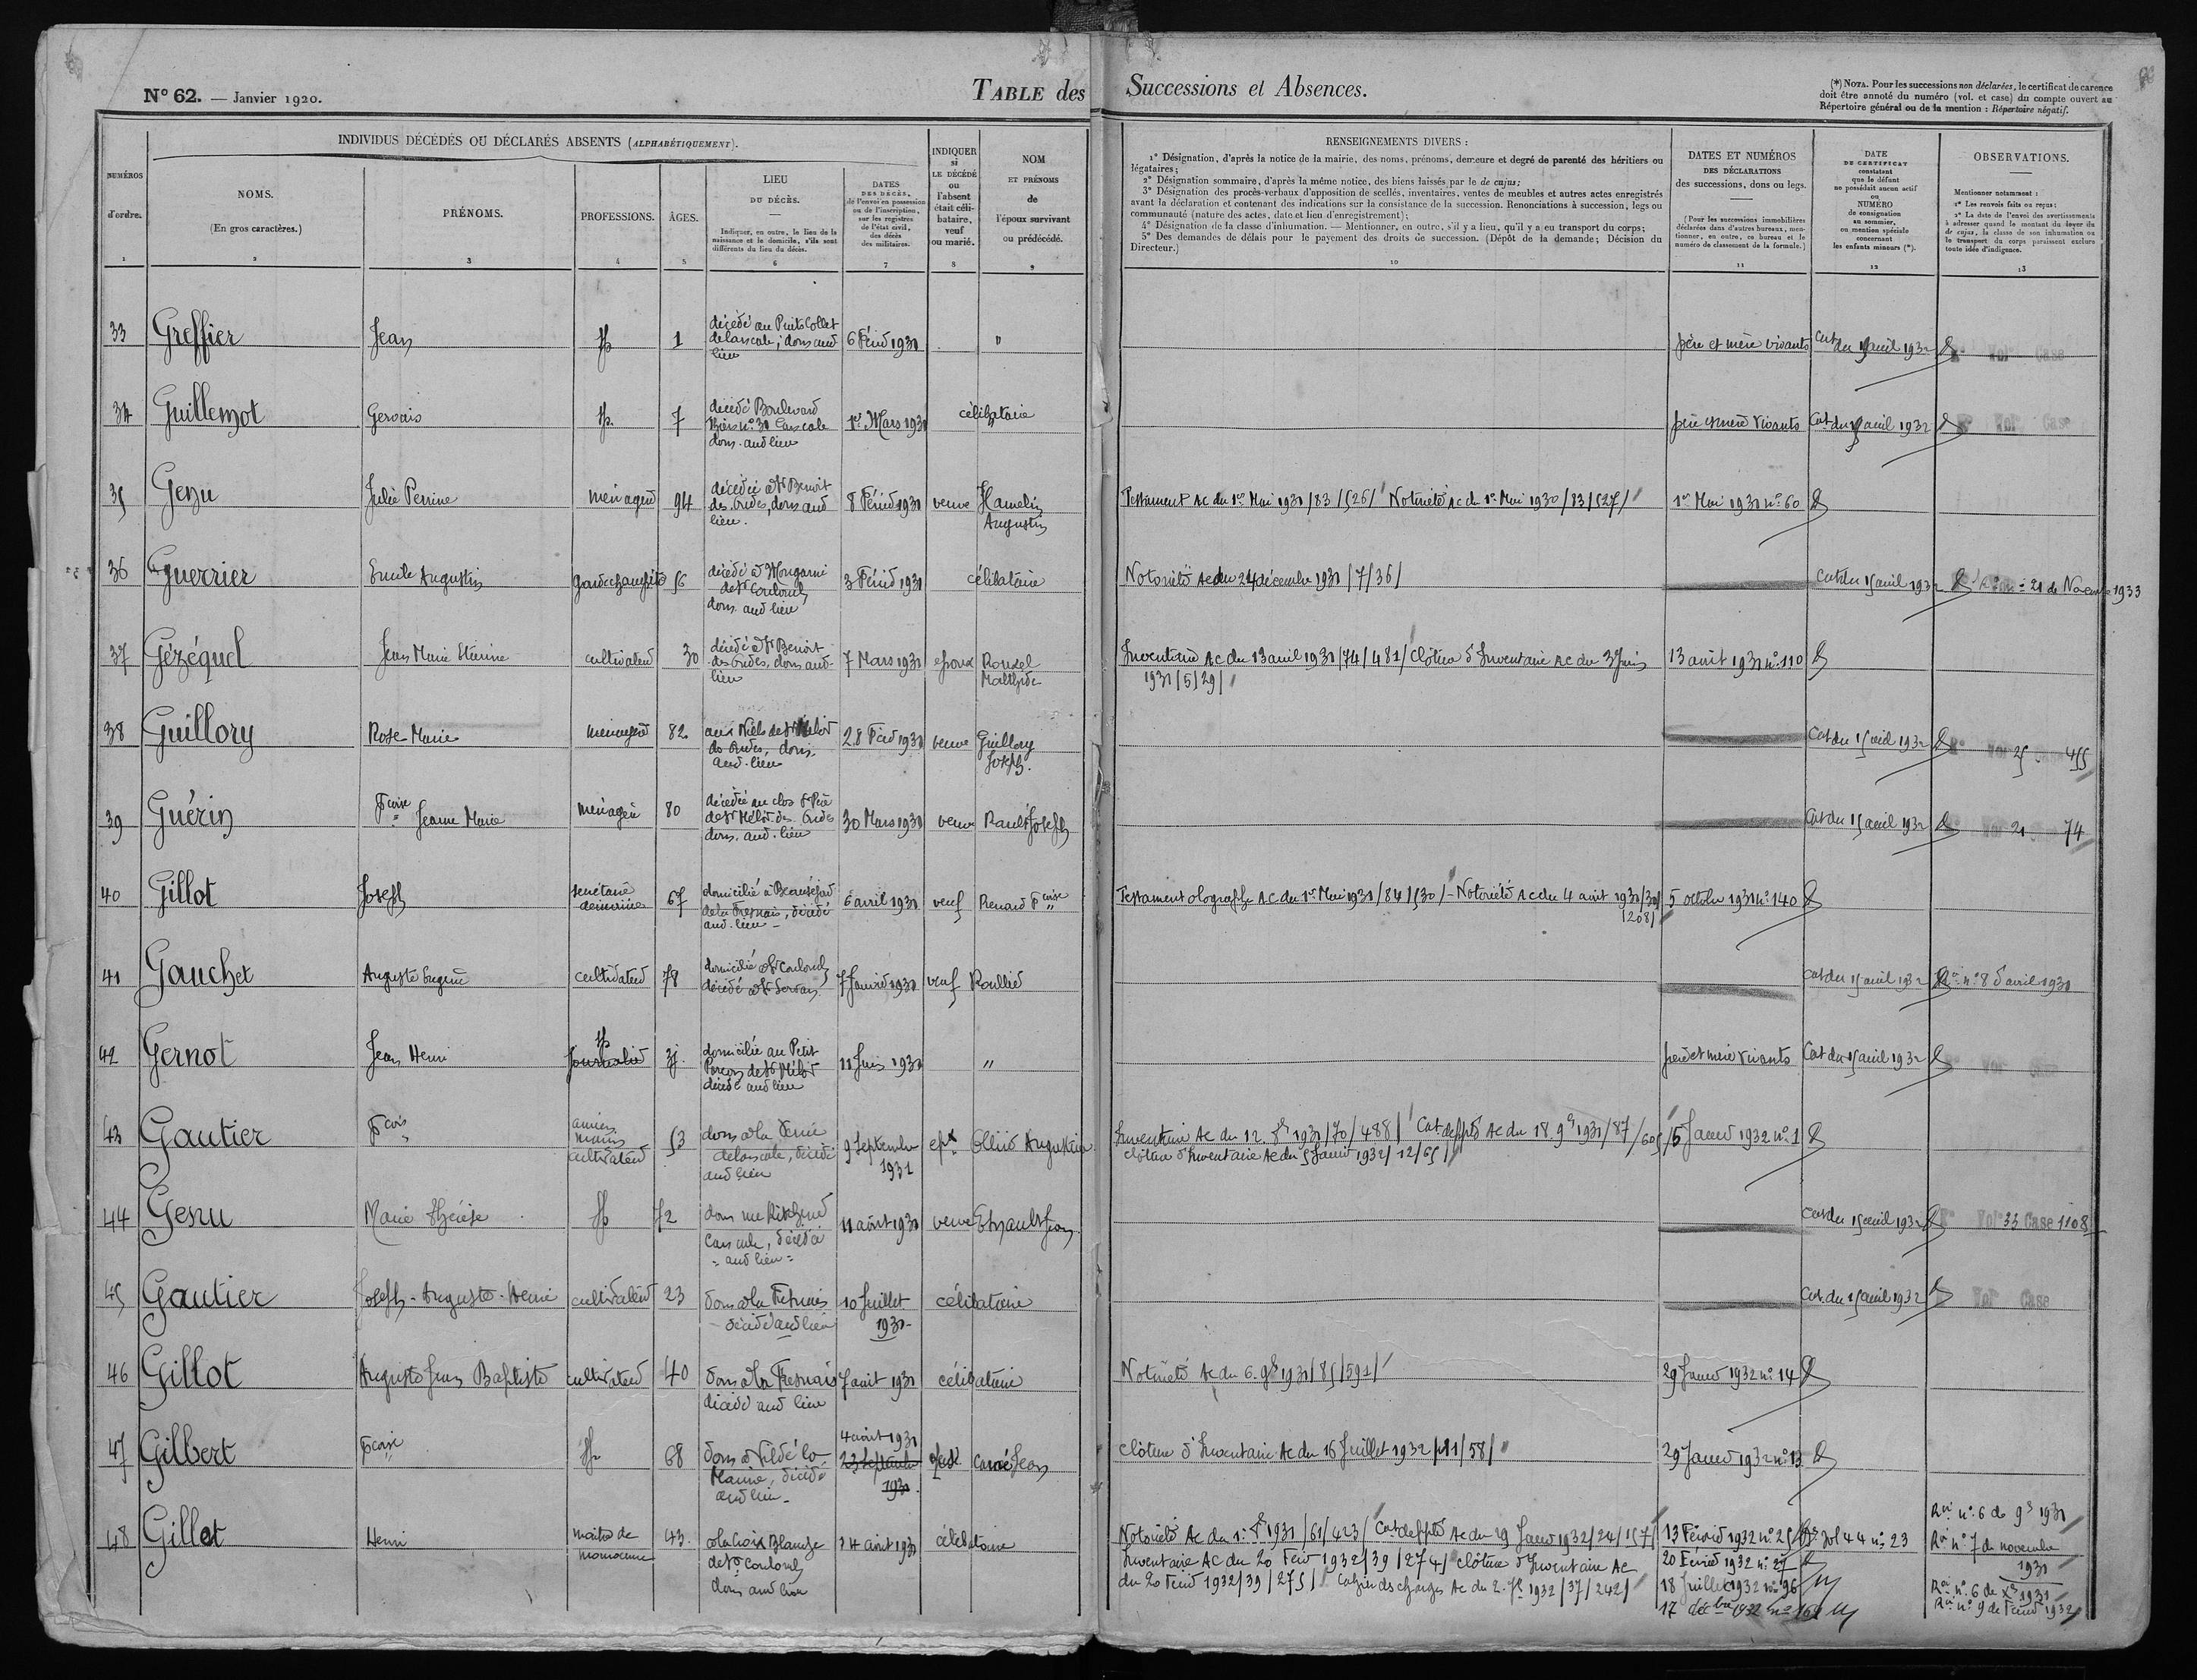 N° 62. — Janvier 1920.
TABLE des Successions et Absences.
(*) NOTA. Pour les successions non déclarées, le certificat de carence
doit être annoté du numéro (vol. et case) du compte ouvert au
Répertoire général ou de la mention : Répertoire négatif.
INDIVIDUS DÉCÉDÉS OU DÉCLARÉS ABSENTS (ALPHABÉTIQUEMENT).
NUMÉROS
d'ordre.
1
NOMS.
(En gros caractères.)
2
PRÉNOMS.
3
PROFESSIONS.
4
ÂGES.
5
LIEU
DU DÉCÈS.
Indiquer, en outre, le lieu de la
naissance et le domicile, s'ils sont
différents du lieu du décès.
6
DATES
DES DÉCÈS,
de l'envoi en possession
ou de l'inscription,
sur les registres
de l'état civil,
des décès
des militaires.
7
INDIQUER
si
LE DÉCÉDÉ
ou
l'absent
était céli-
bataire,
veuf
ou marié.
8
NOM
ET PRÉNOMS
de
l'époux survivant
ou prédécédé.
9
RENSEIGNEMENTS DIVERS :
1° Désignation, d'après la notice de la mairie, des noms, prénoms, demeure et degré de parenté des héritiers ou
légataires;
2° Désignation sommaire, d'après la même notice, des biens laissés par le de cujus;
3° Désignation des procès-verbaux d'apposition de scellés, inventaires, ventes de meubles et autres actes enregistrés
avant la déclaration et contenant des indications sur la consistance de la succession. Renonciations à succession, legs ou
communauté (nature des actes, date et lieu d'enregistrement);
4° Désignation de la classe d'inhumation. — Mentionner, en outre, s'il y a lieu, qu'il y a eu transport du corps;
5° Des demandes de délais pour le payement des droits de succession. (Dépôt de la demande; Décision du
Directeur.)
10
DATES ET NUMÉROS
DES DÉCLARATIONS
des successions, dons ou legs.
(Pour les successions immobilières
déclarées dans d'autres bureaux, men-
tionner, en outre, ce bureau et le
numéro de classement de la formule.)
11
DATE
DU CERTIFICAT
constatant
que le défunt
ne possédait aucun actif
ou
NUMÉRO
de consignation
au sommier,
ou mention spéciale
concernant
les enfants mineurs (*).
12
OBSERVATIONS.
Mentionner notamment :
1° Les renvois faits ou reçus;
2° La date de l'envoi des avertissements
à adresser quand le montant du loyer du
de cujus, la classe de son inhumation ou
le transport du corps paraissent exclure
toute idée d'indigence.
13
33 Greffier Jean 1 décédé au Puits Collet
6 Févd 1931 " père et mère vivants Cat du 15 avril 1932
lieu
34 Guillemot Gervais 7 décédé Boulevard
n° 30 Cancale 1er Mars 1931 célibataire père et mère vivants Cat du 15 avril 1932
dom. aud lieu
35 Genu Julie Perrine ménagère 94 décédée à St Benoit
des Ondes, dom aud 8 Févd 1931 veuve Hamelin Testament Ac du 1er Mai 1931/83/526/ Notoriété Ac du 1er Mai 1930/83/527/ 1er Mai 1931 n° 60
lieu. Augustin
36 Guerrier Emile Augustin garde champêtre 56 décédé à
de St Coulomb 3 Févd 1931 célibataire Notoriété Ac du 24 décembre 1931/7/36/ Cat du 15 avril 1932 n° 21 de Novemb 1933
dom. aud lieu
37 Gézéquel Jean Marie Etienne cultivateur 30 décédé à St Benoit
des Ondes, dom aud 7 Mars 1931 époux Rouxel Inventaire Ac du 13 avril 1931/74/481/ Clôture d'Inventaire Ac du 3 Juin 13 août 1931 n° 110
lieu Mathilde 1931/5/29/
38 Guillory Rose Marie ménagère 82 aux Niels de St Méloir
des Ondes, dom. 28 Févd 1931 veuve Guillory Cat du 15 avril 1932 25 455
aud. lieu Joseph.
39 Guérin Fcoise Jeanne Marie ménagère 80 décédée au clos
de St Méloir des Ondes 30 Mars 1931 veuve Rault Joseph Cat du 15 avril 1932 21 74
dom. aud. lieu
40 Gillot Joseph secrétaire 67 domicilié à Beauséjour
de la Fresnais, décédé 6 avril 1931 veuf Renard Fcoise Testament olographe Ac du 1er Mai 1931/84/530/ - Notoriété Ac du 4 août 1931/30/ 5 octobre 1931 n° 140
aud. lieu - /208/
41 Gauchet Auguste Eugène cultivateur 78 domicilié à St Coulomb
décédé à St Servan 7 Janvier 1931 veuf Roullier Cat du 15 avril 1932 n° 8 d'avril 1931
42 Gernot Jean Henri Journalier 3j. domicilié au Petit
de St Méloir 11 Juin 1931 " père et mère vivants Cat du 15 avril 1932
décédé aud lieu
43 Gautier Fcois ancien
marin
cultivateur 53 dom à la
de Cancale, décédé 9 Septembre époux Ollivier Augustine Inventaire Ac du 12 1931/70/488/ Cat de ppté Ac du 18 9bre 1931/87/605/ 5 Janvd 1932 n° 1
aud lieu 1931 clôture d'Inventaire Ac du 5 Janvier 1932/12/65/
44 Genu Marie Thérèse 72 dom rue
Cancale, décédée 11 août 1931 veuve Jean Cat du 15 avril 1932 Vol° 33 Case 1108
aud lieu
45 Gautier Joseph-Auguste-Henri cultivateur 23 dom à la Fresnais 10 Juillet célibataire Cat. du 15 avril 1932 Vol° Case
décédé aud lieu 1931
46 Gillot Auguste Jean Baptiste cultivateur 40 dom à la Fresnais 7 août 1931 célibataire Notoriété Ac du 6. 9bre 1931/85/591/ 29 Janvd 1932 n° 14
décédé aud lieu
47 Gilbert Fcoise 68 dom à Vildé la
Marine, décédée 4 août 1931 Carré Jean clôture d'Inventaire Ac du 16 Juillet 1932/11/58/ 29 Janvd 1932 n° 13
aud lieu 23 Septembre 1930
48 Gillet Henri maître de
manoeuvre 43. à la Croix Blanche 14 août 1931 célibataire Notoriété Ac du 1er 1931/61/423/ Cat de ppté Ac du 29 Janvd 1932/24/157/ 13 Février 1932 n° 25 vol 44 n° 23 n° 6 de 9bre 1931
de St Coulomb Inventaire Ac du 20 Févd 1932/39/274/ clôture d'Inventaire Ac 20 Février 1932 n° 27 n° 7 de novembre 1931
dom aud lieu du 20 Févd 1932/39/275/ Cahier des charges Ac du 2. 1932/37/242/ 18 Juillet 1932 n° 96 n° 6 de Xbre 1931
17 décbre 1932 n° 161 n° 9 de Févd 1932